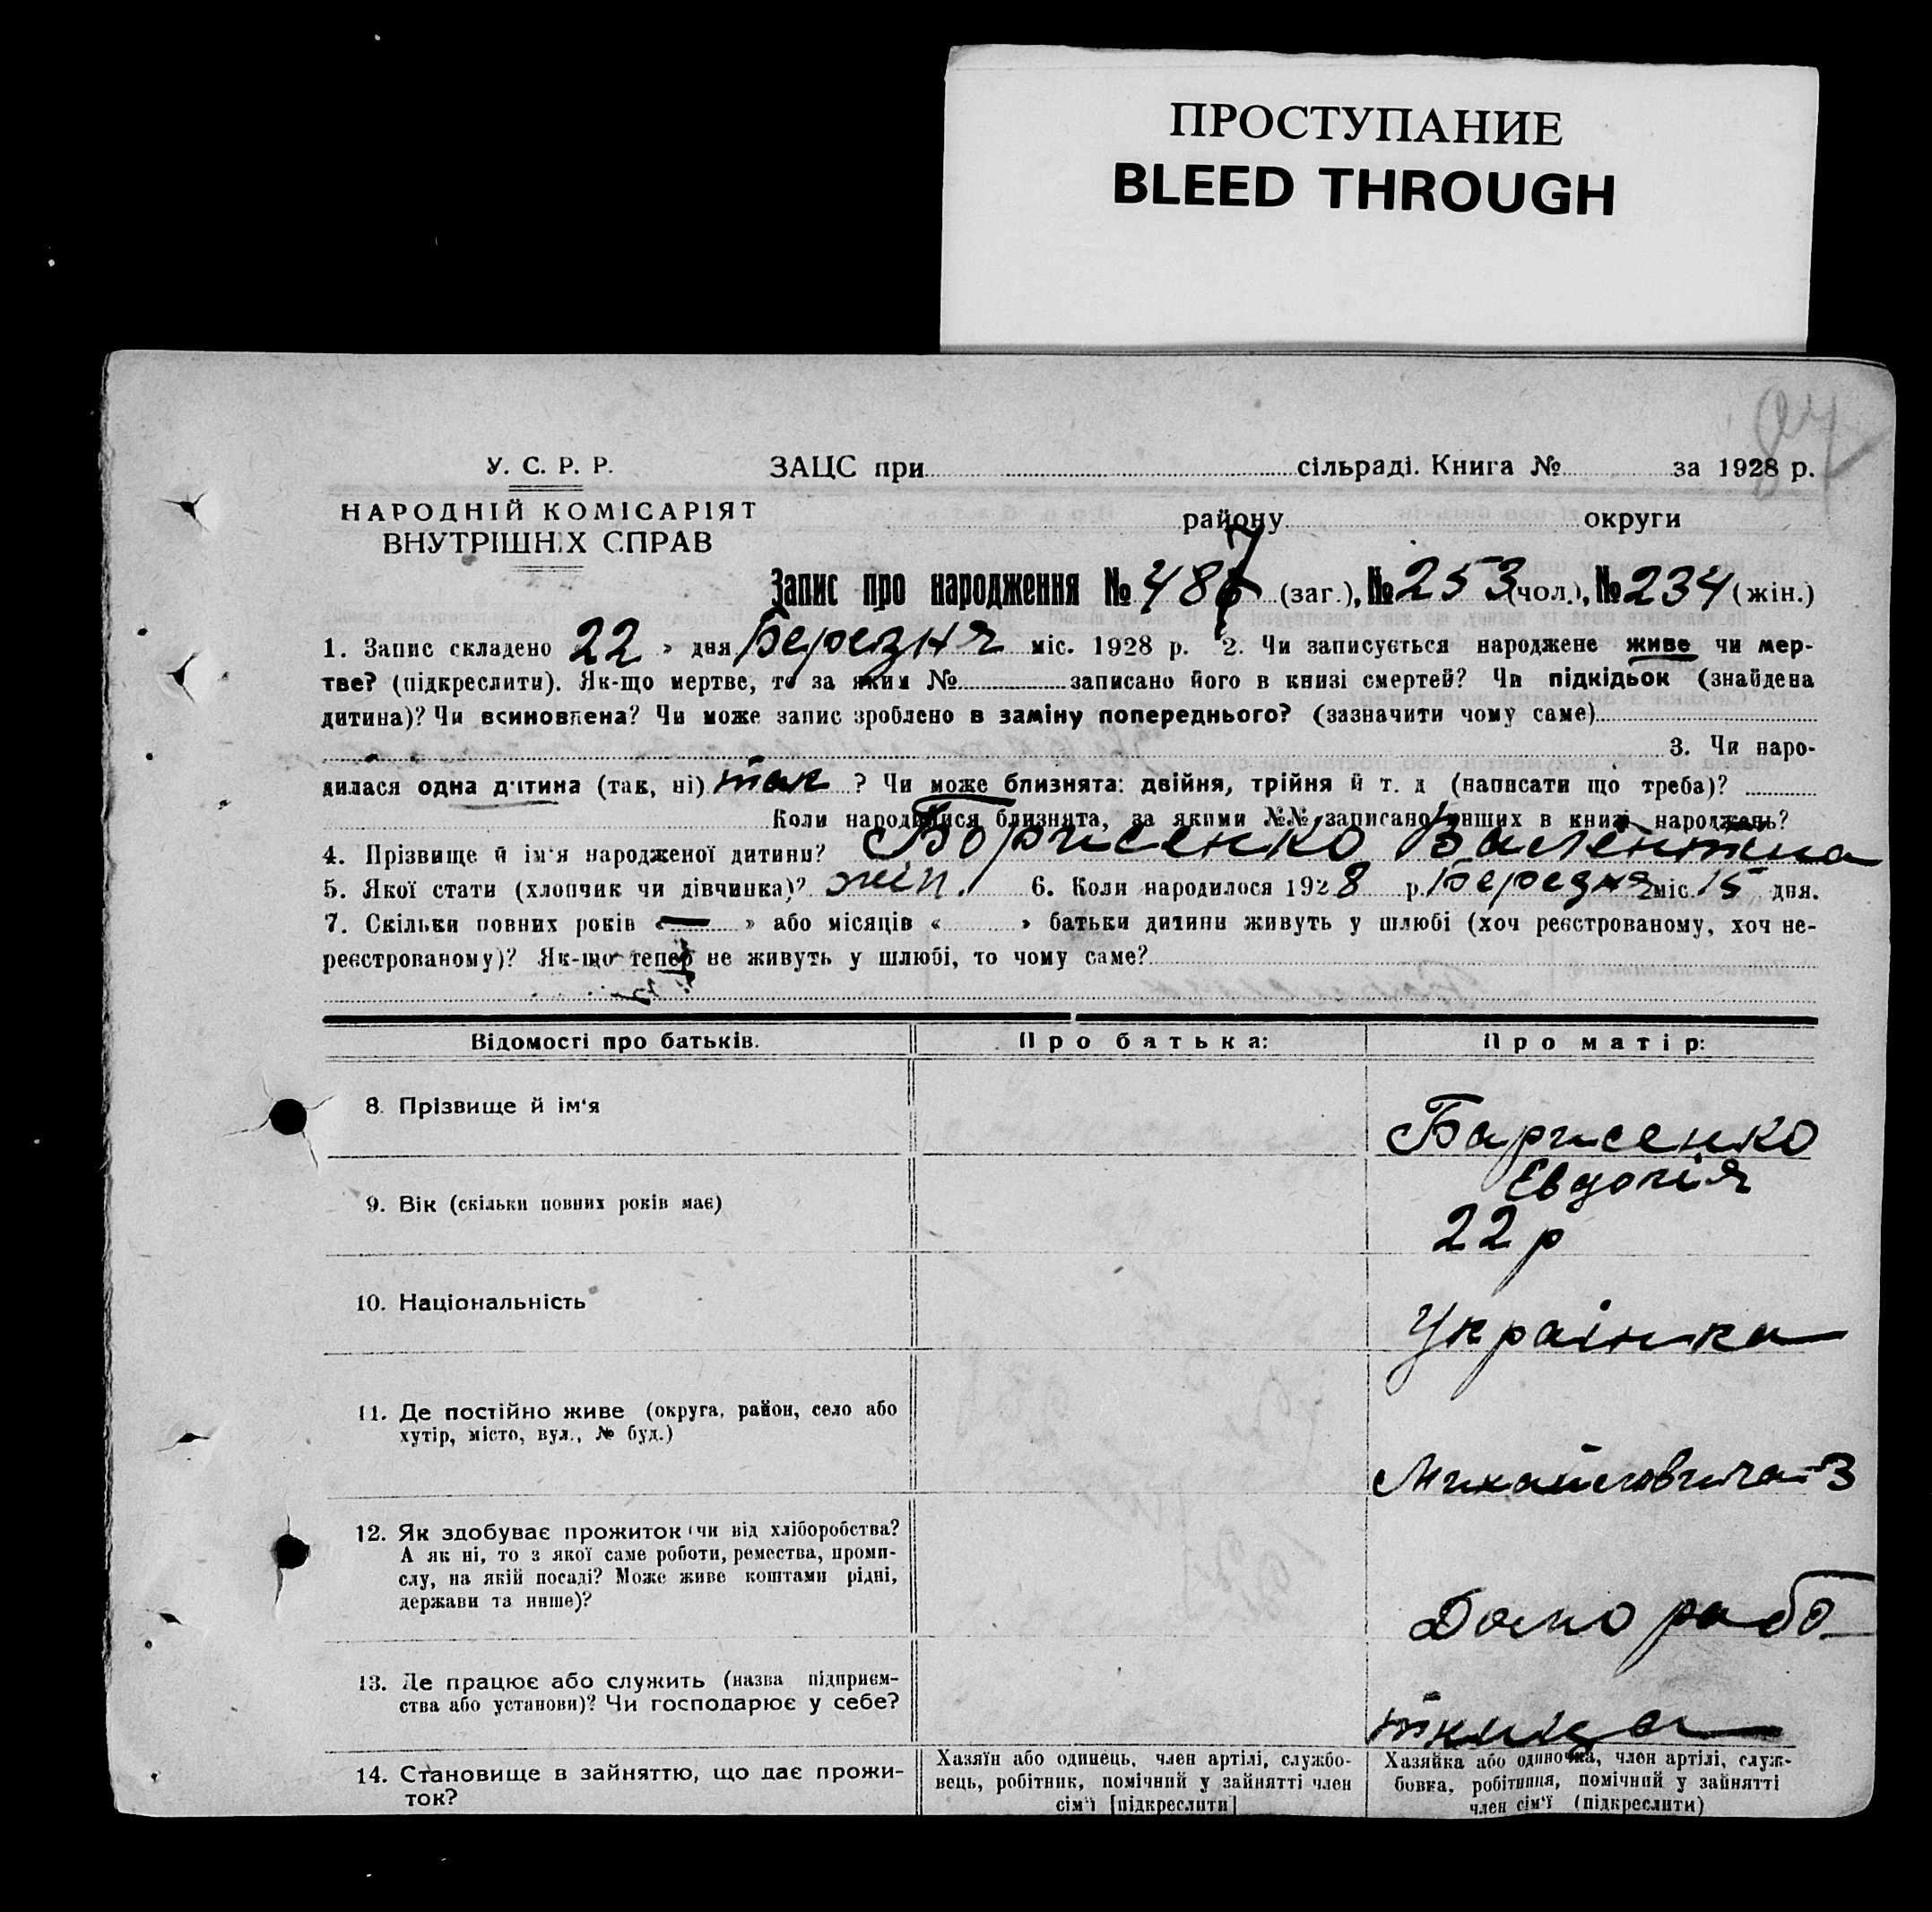 ПРОСТУПАНИЕ
BLEED THROUGH
У. С. Р. Р.
НАРОДНІЙ КОМІСАРІЯТ
ВНУТРІШНІХ СПРАВ
ЗАЦС при сільраді. Книга № за 1928 р.
району округи
Запис про народження № 487 (заг.), № 253 (чол.), № 234 (жін.)
1. Запис складено 22 » дня Березня міс. 1928 р. 2. Чи записується народжене живе чи мер-
тве? (підкреслити). Як-що мертве, то за яким № записано його в книзі смертей? Чи підкідьок (знайдена
дитина)? Чи всиновлена? Чи може запис зроблено в заміну попереднього? (зазначити чому саме)
3. Чи наро-
дилася одна дитина (так, ні) так ? Чи може близнята: двійня, трійня й т. д (написати що треба)?
Коли народилися близнята, за якими №№ записано инших в книзі народжень?
4. Прізвище й ім'я народженої дитини? Борисенко Валентина
5. Якої стати (хлопчик чи дівчинка)? жін. 6. Коли народилося 1928 р. Березня міс. 15 дня.
7. Скільки повних років « — » або місяців « » батьки дитини живуть у шлюбі (хоч реєстрованому, хоч не-
реєстрованому)? Як-що тепер не живуть у шлюбі, то чому саме?
Відомості про батьків. Про батька: Про матір:
8. Прізвище й ім'я
Борисенко
Євдокія
9. Вік (скільки повних років має)
22 р
10. Національність
Українка
11. Де постійно живе (округа, район, село або
хутір, місто, вул., № буд.)
Михайловича-3
12. Як здобуває прожиток чи від хліборобства?
А як ні, то з якої саме роботи, ремества, проми-
слу, на якій посаді? Може живе коштами рідні,
держави та инше)?
Домо рабо-
13. Де працює або служить (назва підприєм-
ства або установи)? Чи господарює у себе?
тница
14. Становище в зайняттю, що дає прожи-
ток?
Хазяїн або одинець, член артілі, службо-
вець, робітник, помічний у зайнятті член
сім'ї [підкреслити]
Хазяйка або одиночка, член артілі, служ-
бовка, робітниця, помічний у зайнятті
член сім'ї (підкреслити)